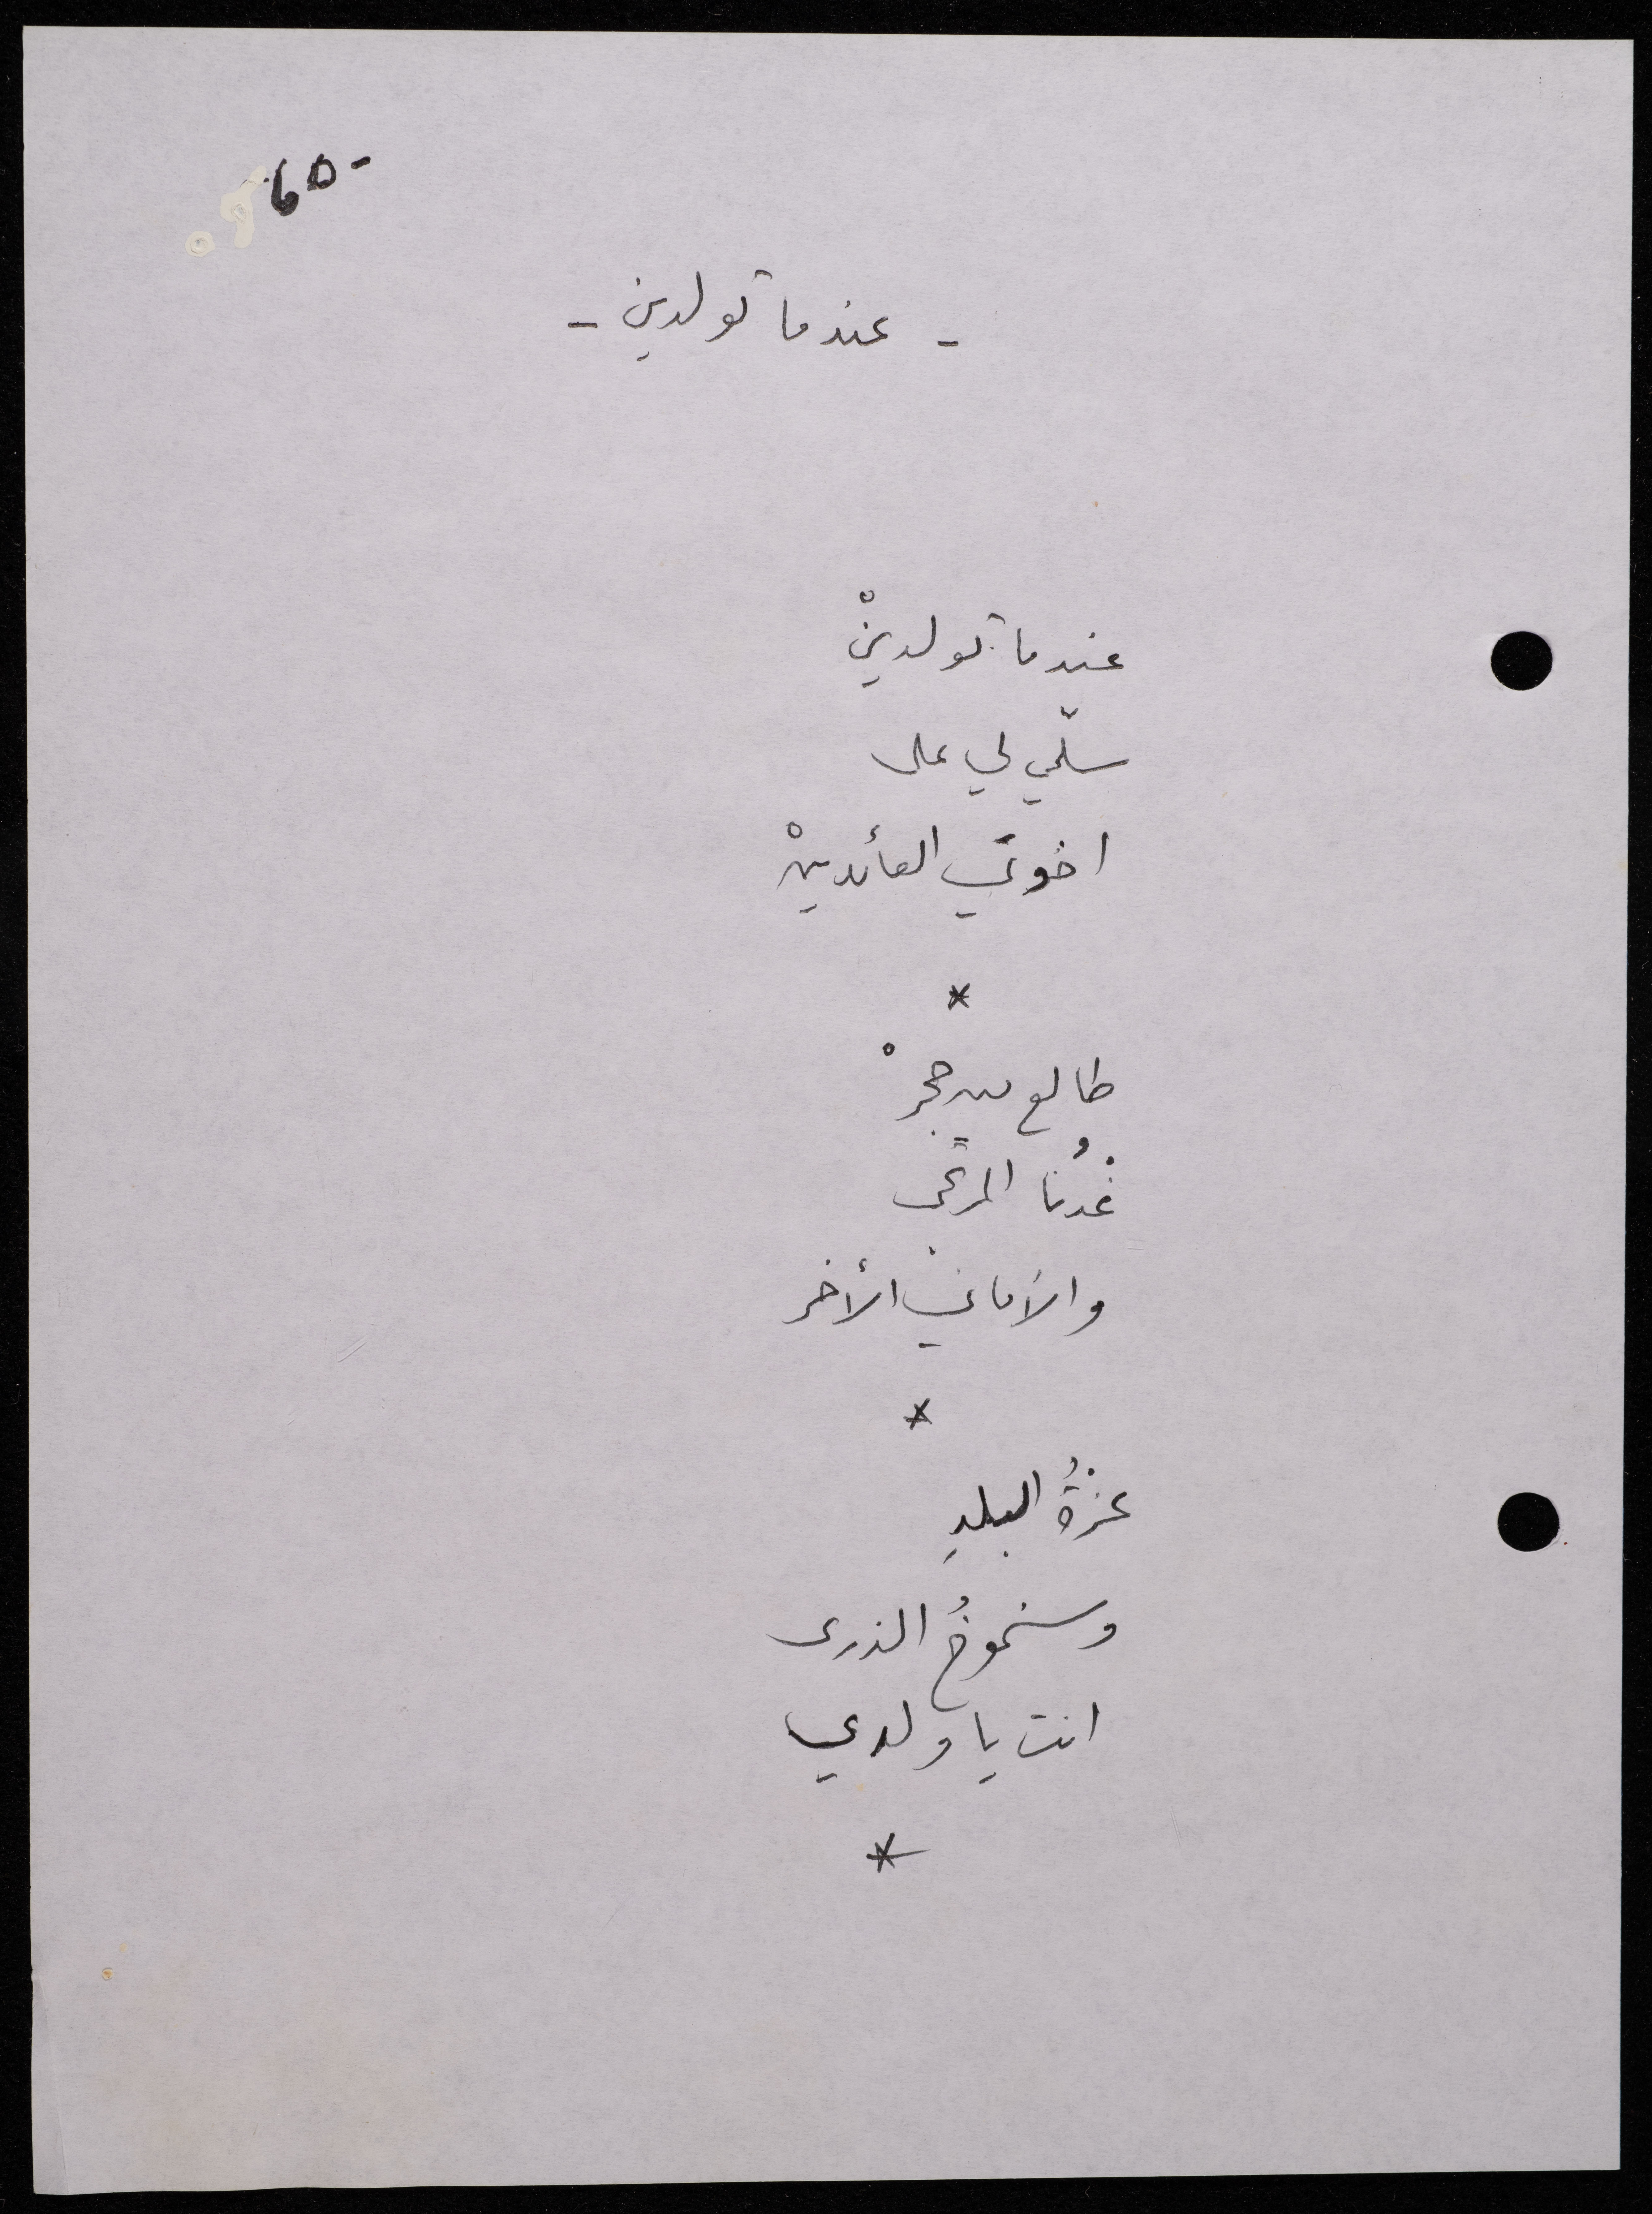 - ٥٦
- عندما تولدين -
عندما تولدينْ
سلّمي لي على
اخوتي العائدينْ
*
طالع من حجرْ
غدُنا المرتجى
والأماني الأخر
*
عزةُ البلدِ
وشموخُ الذرى
انت يا ولدي
*